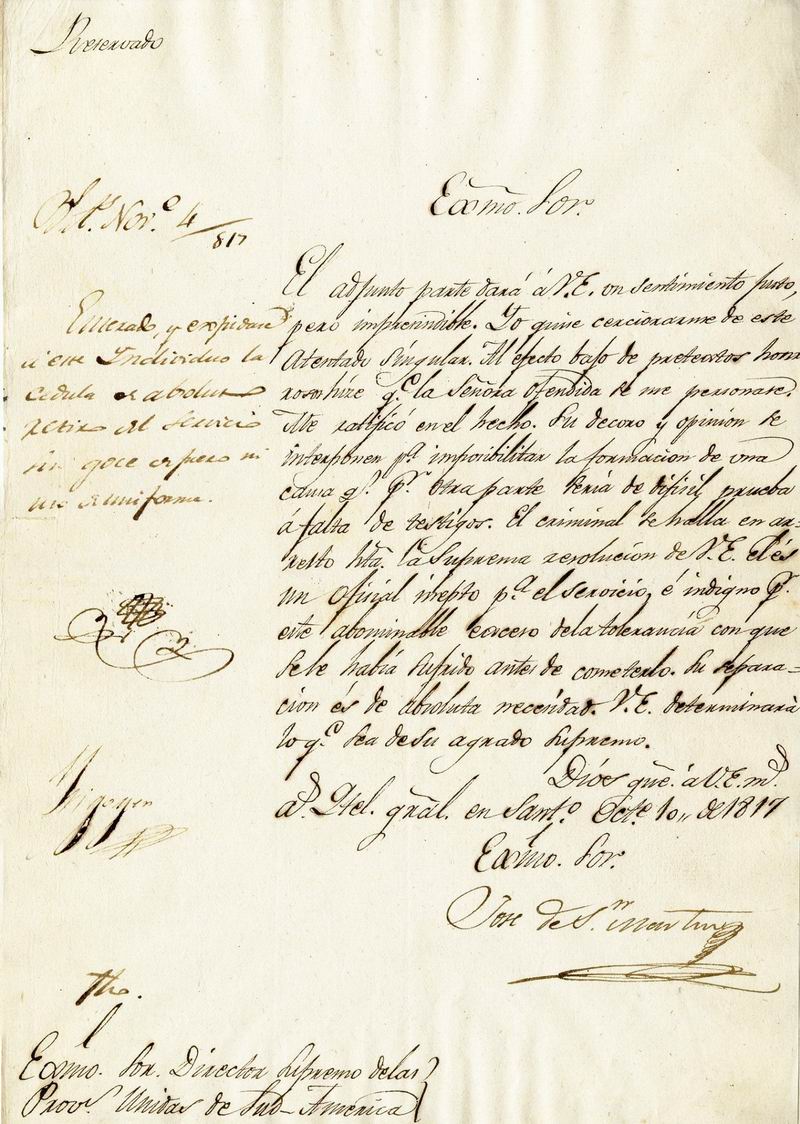 Reservado
Exmo. Sor.
El adjunto parte dará á V.E. un sentimiento justo,
pero imprecindible. Yo quise cerciorarme de este
atentado singular. Al efecto bajo de pretextos honr
rosos hize q.e la Señora ofendida se me personase.
Me ratificó en el hecho. Su decoro y opinion se
interponen p.a imposibilitar la formacion de una
causa q.e p.r otra parte seria de dificil prueba
á falta de testigos. El criminal se halla en ar-
resto hta. la Suprema resolucion de V.E. El és
un Oficial inepto p.a el servicio, é indigno p.r
este abominable exceso de la tolerancia con que
se le habia sufrido antes de cometerlo. Su separa=
cion és de absoluta necesidad. V.E. determinará
lo q.e sea de su agrado Supremo.
Dios gue. á V.E. m.s
a.s Qtel. gral. en Sant.o Octe. 10,, de 1817
Exmo. Sor.
Jose de S.n Martin
Nov.e 4/817
Enterado, y expidase
á este Individuo la
cedula de absoluto
retiro del servicio
sin goce de fuero ni
uso de uniforme.
Irigoyen
fho.
Exmo. Sor. Director Supremo de las
Prov.s Unidas de Sud-America